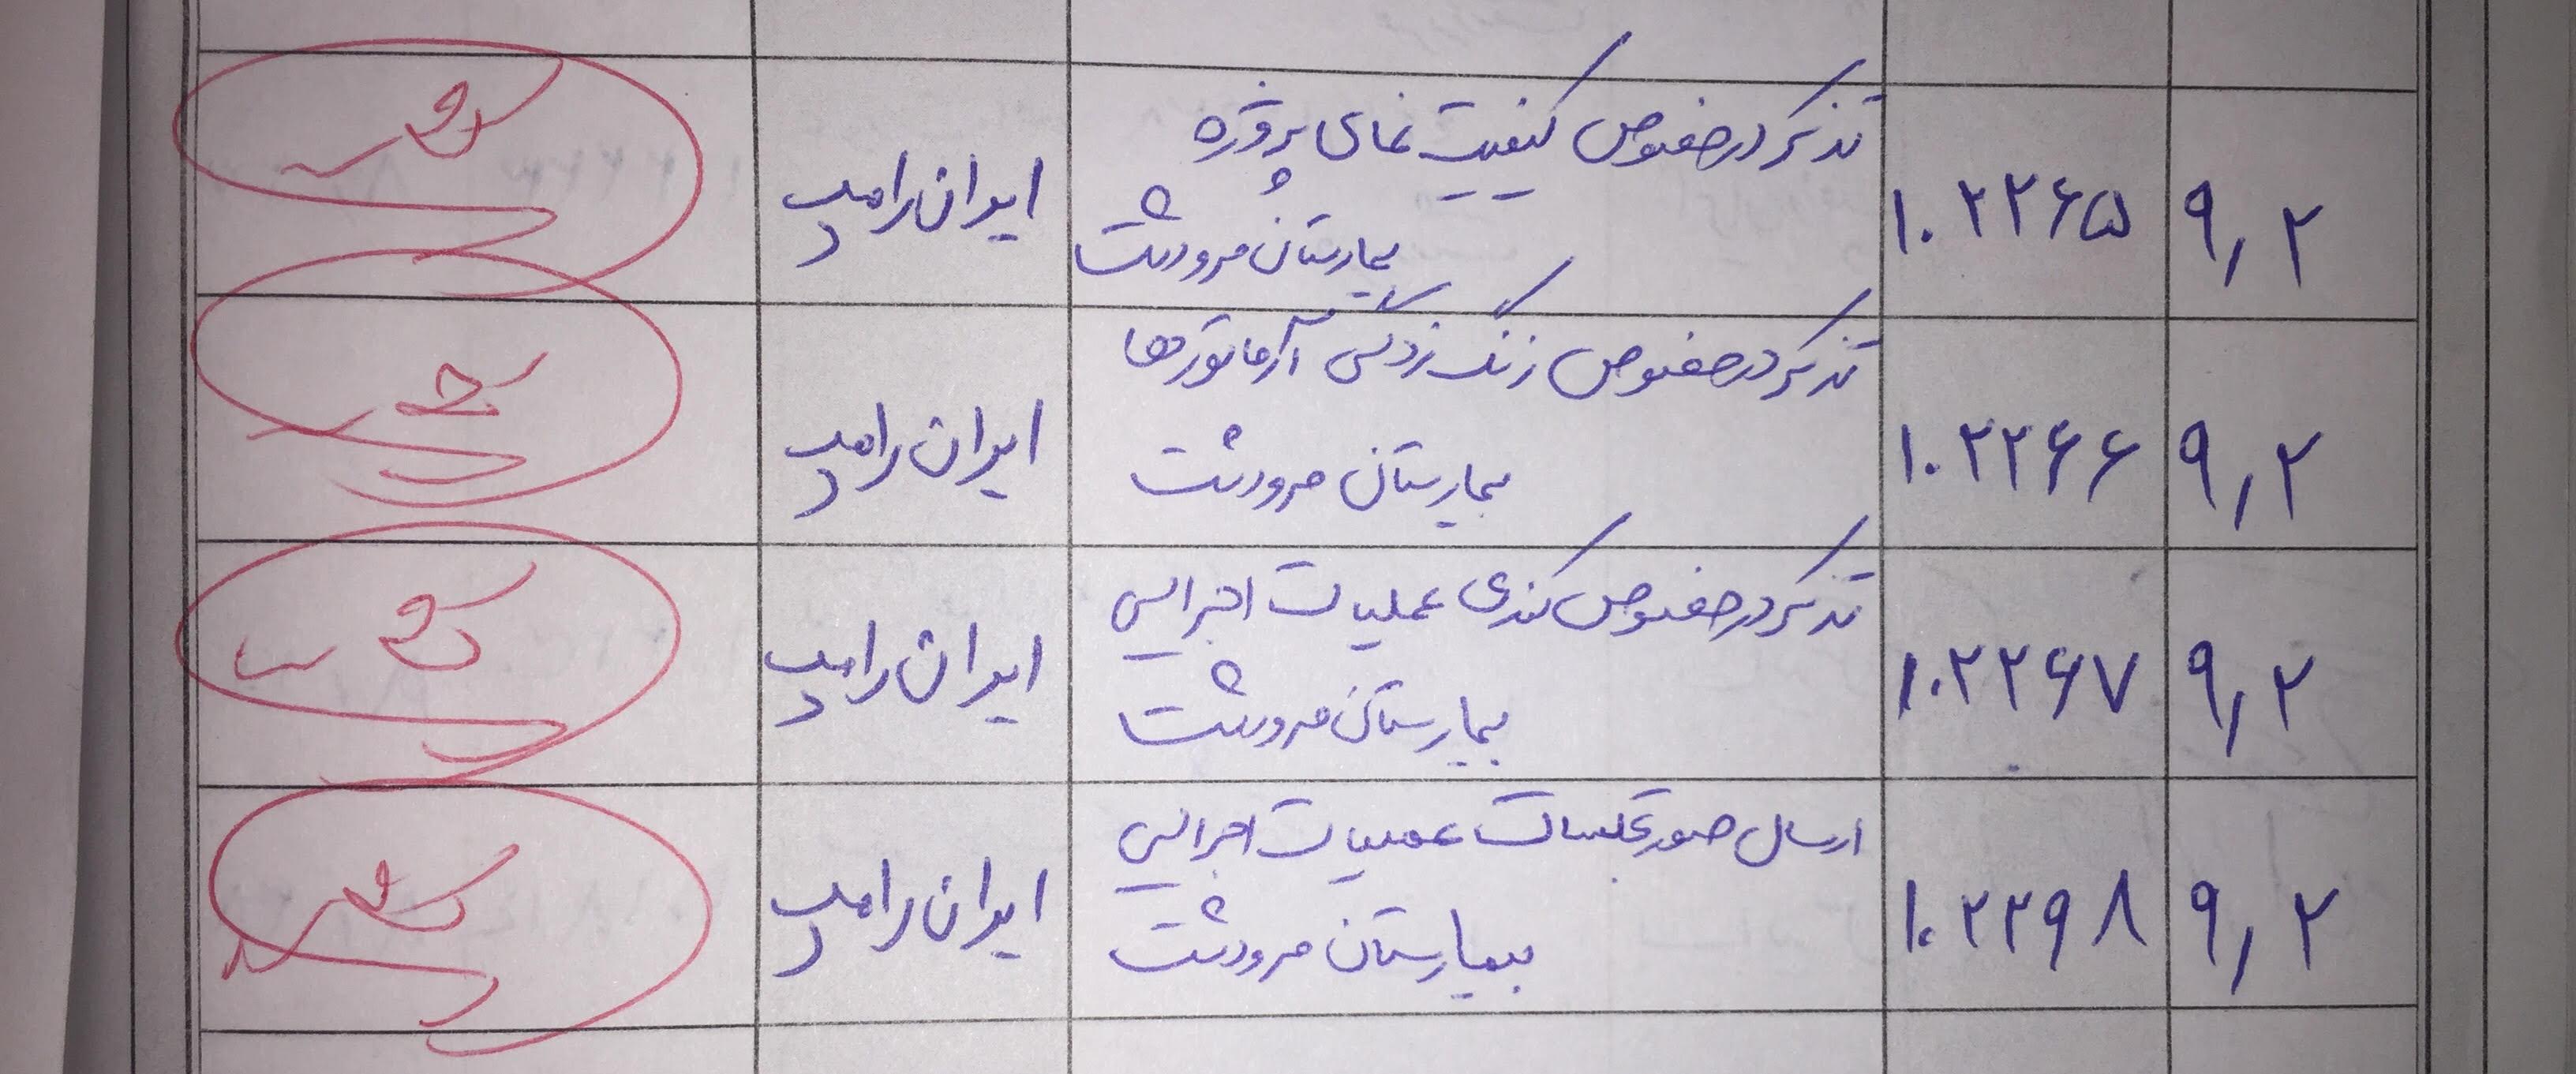 ۹٫۲ ۱۰۲۲۶۵ تذکر در خصوص کیفیت نمای پروژه
بیمارستان مرودشت ایران رامپ
۹٫۲ ۱۰۲۲۶۶ تذکر در خصوص زنگ زدگی آرماتورها
بیمارستان مرودشت ایران رامپ
۹٫۲ ۱۰۲۲۶۷ تذکر در خصوص کندی عملیات اجرایی
بیمارستان مرودشت ایران رامپ
۹٫۲ ۱۰۲۲۹۸ ارسال صورتجلسات عملیات اجرایی
بیمارستان مرودشت ایران رامپ